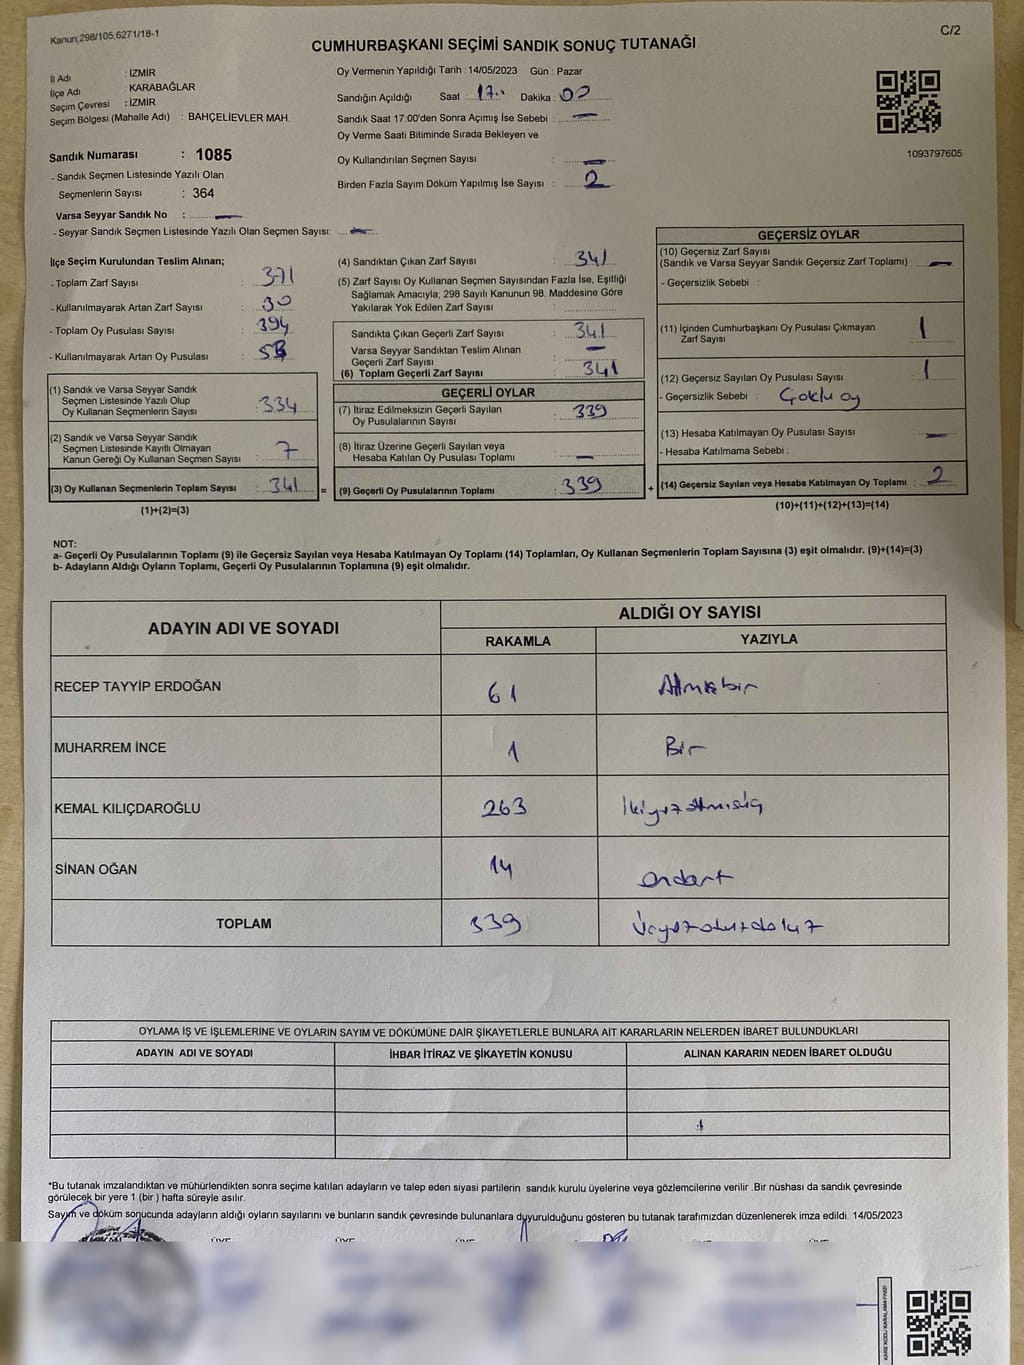 Kanun;298/105;6271/18-1
C/2
CUMHURBAŞKANI SEÇİMİ SANDIK SONUÇ TUTANAĞI
İl Adı : İZMİR
İlçe Adı : KARABAĞLAR
Seçim Çevresi : İZMİR
Seçim Bölgesi (Mahalle Adı) : BAHÇELİEVLER MAH.
Sandık Numarası : 1085
- Sandık Seçmen Listesinde Yazılı Olan
Seçmenlerin Sayısı : 364
Varsa Seyyar Sandık No : —
- Seyyar Sandık Seçmen Listesinde Yazılı Olan Seçmen Sayısı:
Oy Vermenin Yapıldığı Tarih : 14/05/2023 Gün : Pazar
Sandığın Açıldığı Saat : 17.. Dakika : 00
Sandık Saat 17:00'den Sonra Açımış İse Sebebi : —
Oy Verme Saati Bitiminde Sırada Bekleyen ve
Oy Kullandırılan Seçmen Sayısı : —
Birden Fazla Sayım Döküm Yapılmış İse Sayısı : 2
1093797605
İlçe Seçim Kurulundan Teslim Alınan;
- Toplam Zarf Sayısı : 371
- Kullanılmayarak Artan Zarf Sayısı : 30
- Toplam Oy Pusulası Sayısı : 394
- Kullanılmayarak Artan Oy Pusulası :
(1) Sandık ve Varsa Seyyar Sandık
Seçmen Listesinde Yazılı Olup
Oy Kullanan Seçmenlerin Sayısı : 334
(2) Sandık ve Varsa Seyyar Sandık
Seçmen Listesinde Kayıtlı Olmayan
Kanun Gereği Oy Kullanan Seçmen Sayısı : 7
(3) Oy Kullanan Seçmenlerin Toplam Sayısı : 341
(1)+(2)=(3)
=
(4) Sandıktan Çıkan Zarf Sayısı : 341
(5) Zarf Sayısı Oy Kullanan Seçmen Sayısından Fazla İse, Eşitliği
Sağlamak Amacıyla, 298 Sayılı Kanunun 98. Maddesine Göre
Yakılarak Yok Edilen Zarf Sayısı :
Sandıkta Çıkan Geçerli Zarf Sayısı : 341
Varsa Seyyar Sandıktan Teslim Alınan
Geçerli Zarf Sayısı : —
(6) Toplam Geçerli Zarf Sayısı : 341
GEÇERLİ OYLAR
(7) İtiraz Edilmeksizin Geçerli Sayılan
Oy Pusulalarının Sayısı : 339
(8) İtiraz Üzerine Geçerli Sayılan veya
Hesaba Katılan Oy Pusulası Toplamı : —
(9) Geçerli Oy Pusulalarının Toplamı : 339
+
GEÇERSİZ OYLAR
(10) Geçersiz Zarf Sayısı
(Sandık ve Varsa Seyyar Sandık Geçersiz Zarf Toplamı) : —
- Geçersizlik Sebebi :
(11) İçinden Cumhurbaşkanı Oy Pusulası Çıkmayan
Zarf Sayısı : 1
(12) Geçersiz Sayılan Oy Pusulası Sayısı : 1
- Geçersizlik Sebebi : Çoklu oy
(13) Hesaba Katılmayan Oy Pusulası Sayısı : —
- Hesaba Katılmama Sebebi :
(14) Geçersiz Sayılan veya Hesaba Katılmayan Oy Toplamı : 2
(10)+(11)+(12)+(13)=(14)
NOT:
a- Geçerli Oy Pusulalarının Toplamı (9) ile Geçersiz Sayılan veya Hesaba Katılmayan Oy Toplamı (14) Toplamları, Oy Kullanan Seçmenlerin Toplam Sayısına (3) eşit olmalıdır. (9)+(14)=(3)
b- Adayların Aldığı Oyların Toplamı, Geçerli Oy Pusulalarının Toplamına (9) eşit olmalıdır.
ADAYIN ADI VE SOYADI
ALDIĞI OY SAYISI
RAKAMLA YAZIYLA
RECEP TAYYİP ERDOĞAN 61 Altmışbir
MUHARREM İNCE 1 Bir
KEMAL KILIÇDAROĞLU 263 İkiyüzaltmışüç
SİNAN OĞAN 14 ondört
TOPLAM 339 Üçyüzotuzdokuz
OYLAMA İŞ VE İŞLEMLERİNE VE OYLARIN SAYIM VE DÖKÜMÜNE DAİR ŞİKAYETLERLE BUNLARA AİT KARARLARIN NELERDEN İBARET BULUNDUKLARI
ADAYIN ADI VE SOYADI İHBAR İTİRAZ VE ŞİKAYETİN KONUSU ALINAN KARARIN NEDEN İBARET OLDUĞU
*Bu tutanak imzalandıktan ve mühürlendikten sonra seçime katılan adayların ve talep eden siyasi partilerin sandık kurulu üyelerine veya gözlemcilerine verilir .Bir nüshası da sandık çevresinde
görülecek bir yere 1 (bir ) hafta süreyle asılır.
Sayım ve döküm sonucunda adayların aldığı oyların sayılarını ve bunların sandık çevresinde bulunanlara duyurulduğunu gösteren bu tutanak tarafımızdan düzenlenerek imza edildi. 14/05/2023